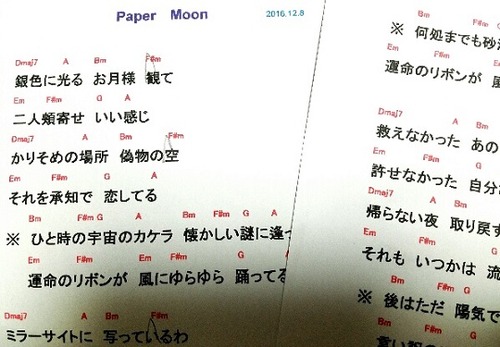 Paper Moon
2016.12.8
Dmaj7 A Bm F#m
銀色に光る お月様 観て
Em F#m G A
二人頬寄せ いい感じ
Dmaj7 A Bm F#m
かりそめの場所 偽物の空
Em F#m G A
それを承知で 恋してる
Bm F#m G A Bm F#m G A
※ ひと時の宇宙のカケラ 懐かしい謎に逢っ
Em F#m Bm Em F#m G A
運命のリボンが 風にゆらゆら 踊ってる
Dmaj7 A Bm F#m
ミラーサイトに 写っているわ
Bm F#m G
※ 何処までも砂
Em F#m Bm
運命のリボンが 風
Dmaj7 A Bm
救えなかった あの
Em F#m G
許せなかった 自分
Dmaj7 A Bm
帰らない夜 取り戻す
Em F#m G
それも いつかは 流
Bm F#m G
※ 後はただ 陽気で
Em F#m Bm